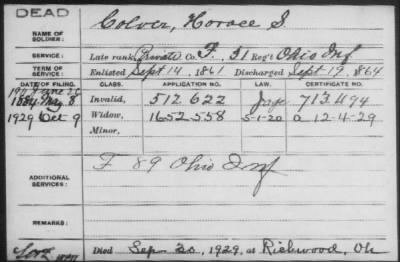 DEAD
NAME OF SOLDIER: Colver, Horace S.
SERVICE: Late rank Private Co. F, 31 Reg't Ohio Inf
TERM OF SERVICE: Enlisted Sept 14, 1861 Discharged Sept 19, 1864
DATE OF FILING. CLASS. APPLICATION NO. LAW. CERTIFICATE NO.
June 26
1884 May 8 Invalid, 512.622 713.494
1929 Oct 9 Widow, 1652.558 5-1-20 a 12-4-29
Minor,
ADDITIONAL SERVICES: F 89 Ohio Inf
REMARKS:
Died Sep 20, 1929, at Richwood, Oh